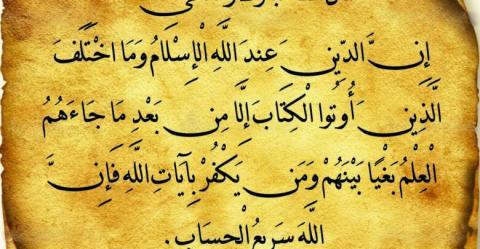 إِنَّ الدِّينَ عِندَ اللَّهِ الْإِسْلَامُ وَمَا اخْتَلَفَ
الَّذِينَ أُوتُوا الْكِتَابَ إِلَّا مِن بَعْدِ مَا جَاءَهُمُ
الْعِلْمُ بَغْيًا بَيْنَهُمْ وَمَن يَكْفُرْ بِآيَاتِ اللَّهِ فَإِنَّ
اللَّهَ سَرِيعُ الْحِسَابِ.